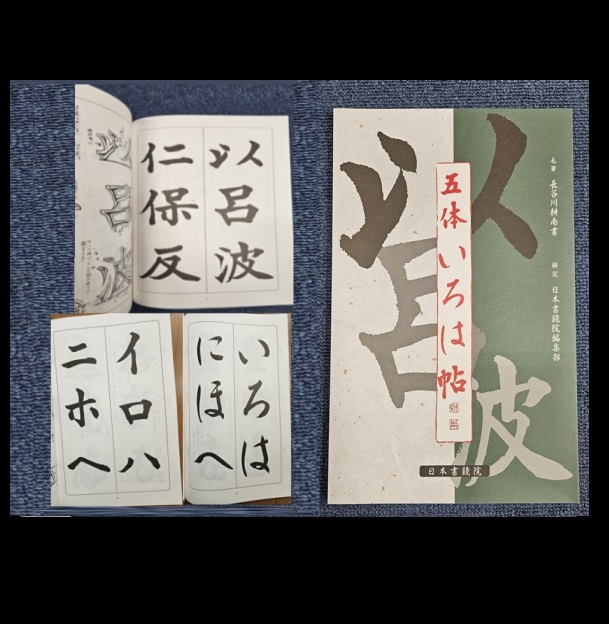 以呂波
仁保反
イロハ
ニホヘ
いろは
にほへ
以呂波
五体いろは帖
毛筆 長谷川耕南書
解説 日本書鏡院編集部
日本書鏡院